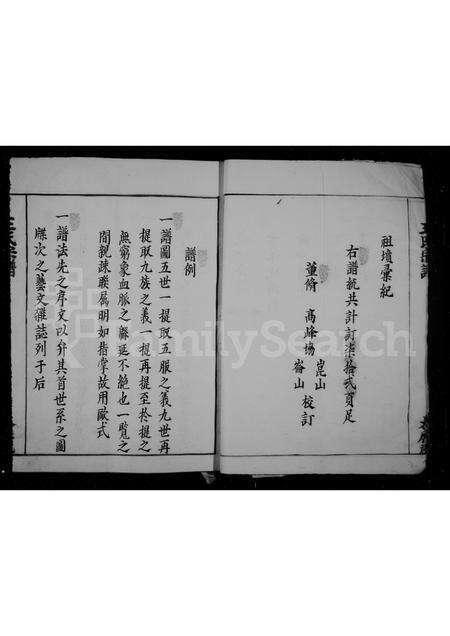 祖墳彙紀
右譜新共計訂柒拾弍頁足
董脩 高峰協 崑山 崙山 校訂
譜例
一譜圖五世一提取五服之義九世再
提取九族之義一提再提至於提之
無窮象血脈之緜延不絶也一覽之
間親疎聯属明如指掌故用歐式
一譜法先之序文以弁其首世系之圖
牒次之藝文雜誌列于后
FamilySearch